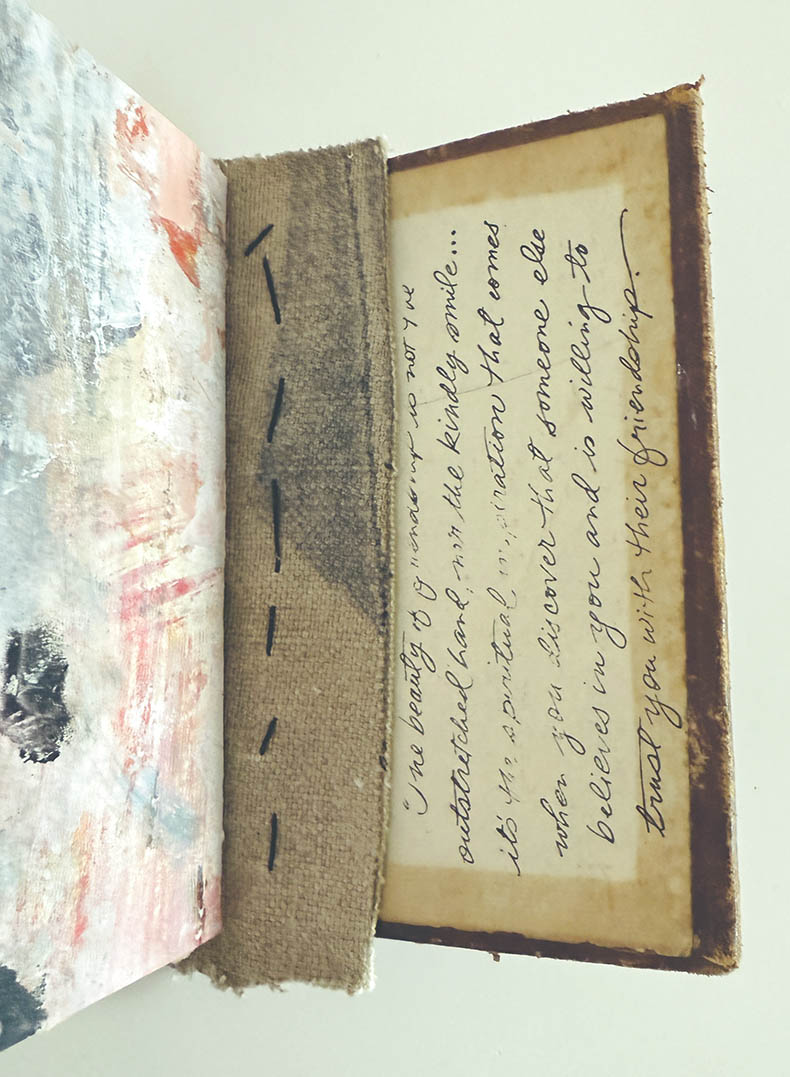 "The beauty of friendship is not the
outstretched hand, nor the kindly smile...
it's the spiritual inspiration that comes
when you discover that someone else
believes in you and is willing to
trust you with their friendship.